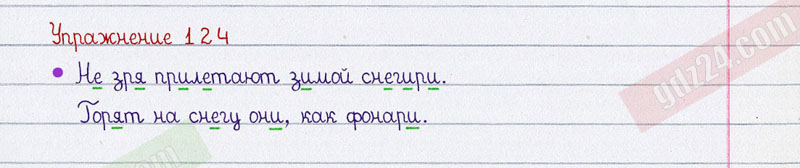 Упражнение 124
• Не зря прилетают зимой снегири.
Горят на снегу они, как фонари.
gdz24.com